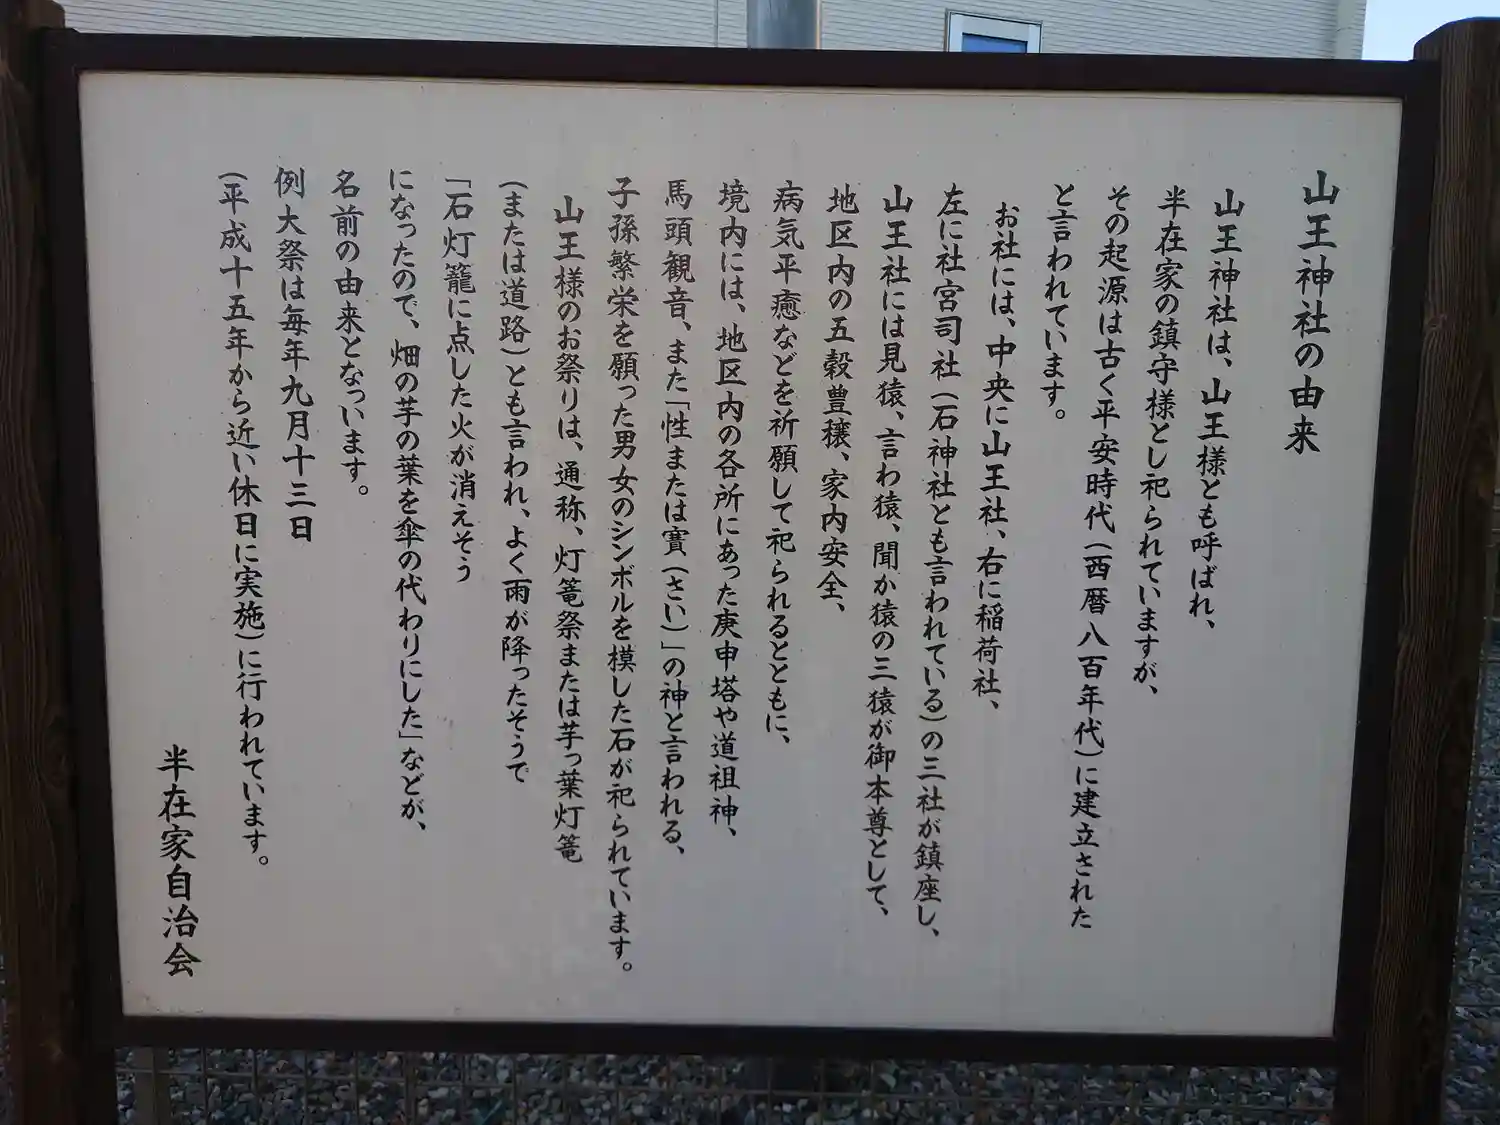 山王神社の由来
山王神社は、山王様とも呼ばれ、
半在家の鎮守様とし祀られていますが、
その起源は古く平安時代(西暦八百年代)に建立された
と言われています。
お社には、中央に山王社、右に稲荷社、
左に社宮司社(石神社とも言われている)の三社が鎮座し、
山王社には見猿、言わ猿、聞か猿の三猿が御本尊として、
地区内の五穀豊穣、家内安全、
病気平癒などを祈願して祀られるとともに、
境内には、地区内の各所にあった庚申塔や道祖神、
馬頭観音、また「性または賽(さい)」の神と言われる、
子孫繁栄を願った男女のシンボルを模した石が祀られています。
山王様のお祭りは、通称、灯篭祭または芋っ葉灯篭
(または道路)とも言われ、よく雨が降ったそうで
「石灯籠に点した火が消えそう
になったので、畑の芋の葉を傘の代わりにした」などが、
名前の由来となっいます。
例大祭は毎年九月十三日
(平成十五年から近い休日に実施)に行われています。
半在家自治会